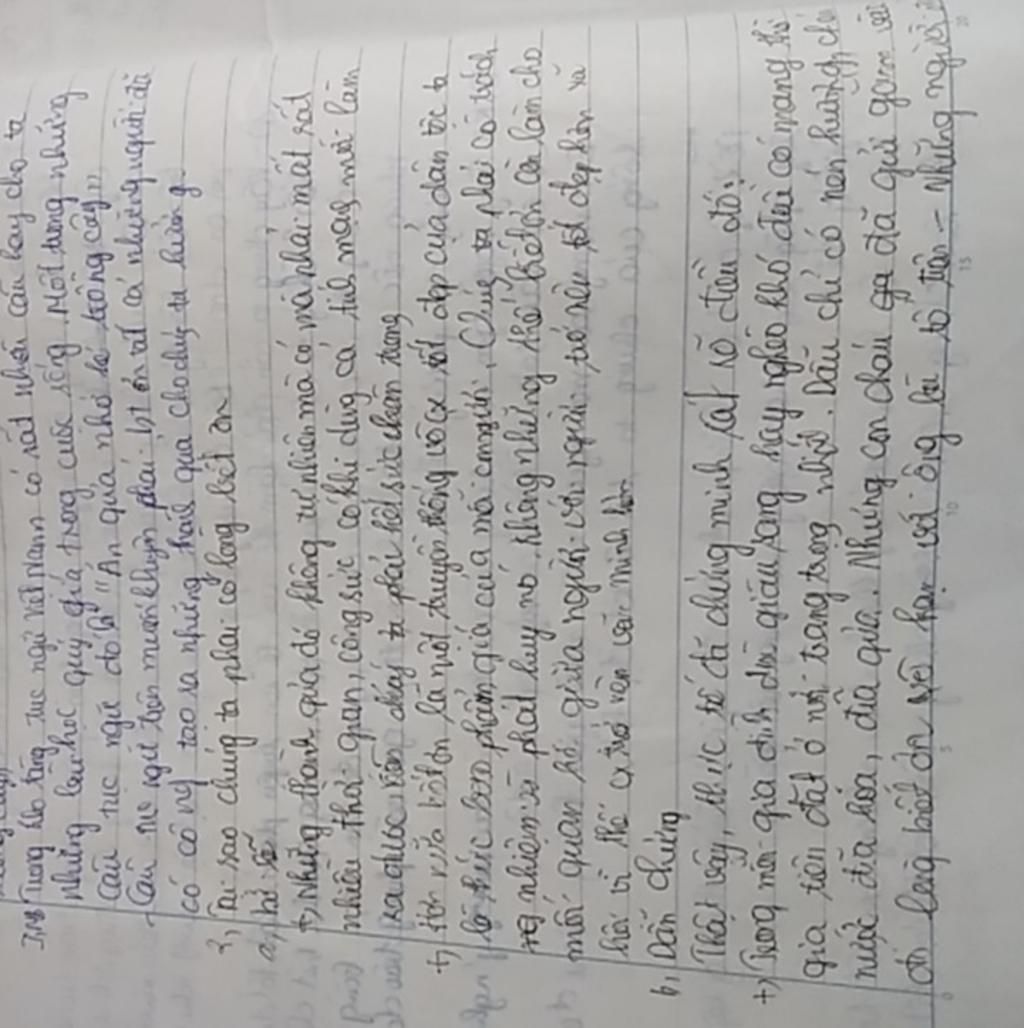 Trong kho tàng tục ngữ Việt Nam có rất nhiều câu hay cho ta
những bài học quý giá trong cuộc sống. Một trong những
câu tục ngữ đó là "Ăn quả nhớ kẻ trồng cây"
- Câu tục ngữ trên muốn khuyên phải biết ơn tất cả những người đã
có công tạo ra những thành quả cho chúng ta hưởng.
2, Tại sao chúng ta phải có lòng biết ơn
a, Lí lẽ
+) Những thành quả đó không tự nhiên mà có mà phải mất rất
nhiều thời gian, công sức có khi dùng cả tính mạng mới làm
ra được nên chúng ta phải hết sức trân trọng
+) Hơn nữa biết ơn là một truyền thống vô cx tốt đẹp của dân tộc ta
là thước đo phẩm giá của mỗi con người. Chúng ta phải có trách
nhiệm phát huy nó. Không những thế biết ơn còn làm cho
mối quan hệ giữa người với người trở nên tốt đẹp hơn xã
hội vì thế cx trở nên văn minh hơn
b, Dẫn chứng
Thật vậy, thực tế đã chứng minh rất rõ điều đó:
+) Trong mỗi gia đình dù giàu sang hay nghèo khó đều có mang thờ
gia tiên đặt ở nơi trang trọng nhất. Dẫu chỉ có nén hương, chén
nước đĩa hoa, đĩa quả. Nhưng con cháu đã gửi gắm vào
đó lòng biết ơn vô hạn với ông bà tổ tiên - Những người